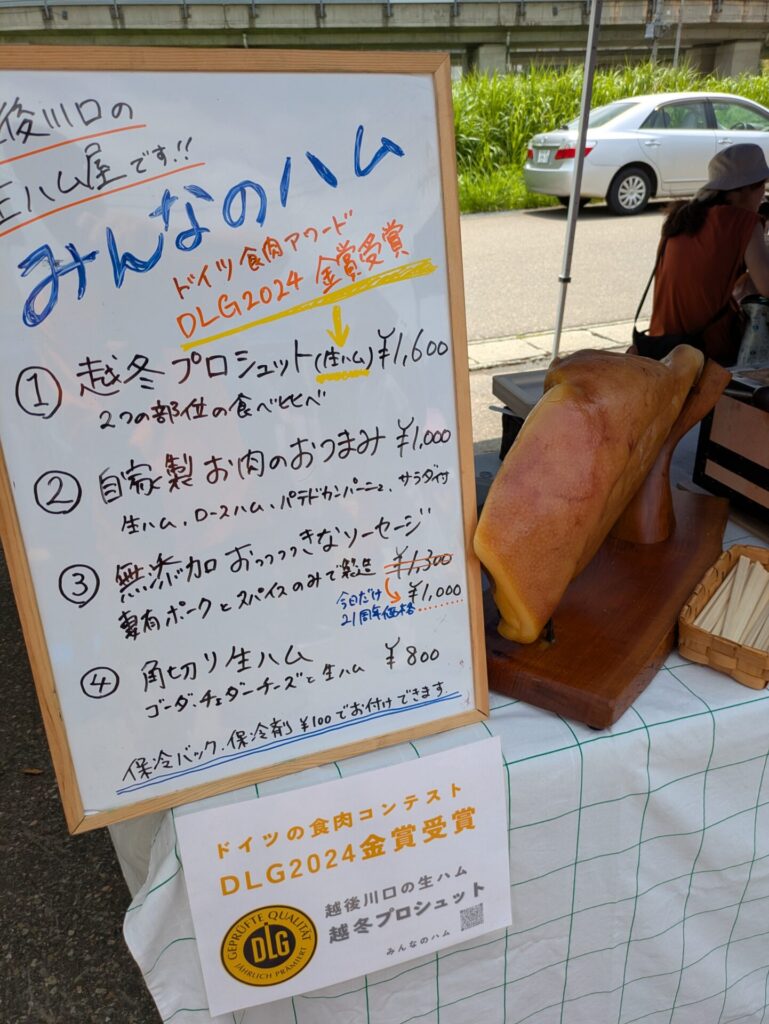 後川口の
ハム屋です!!
みんなのハム
ドイツ食肉アワード
DLG2024 金賞受賞
① 越冬プロシュット(生ハム) ¥1,600
2つの部位の食べ比べ
② 自家製 お肉のおつまみ ¥1,000
生ハム、ロースハム、パテドカンパーニュ、サラダ付
③ 無添加 おっっっっきなソーセージ
ポークとスパイスのみで製造 ¥1,300
今日だけ
21周年価格 ¥1,000
④ 角切り生ハム ¥800
ゴーダ、チェダーチーズと生ハム
保冷バック、保冷剤 ¥100でお付けできます
ドイツの食肉コンテスト
DLG2024金賞受賞
越後川口の生ハム
越冬プロシュット
みんなのハム
GEPRÜFTE QUALITÄT
DLG
JÄHRLICH PRÄMIERT